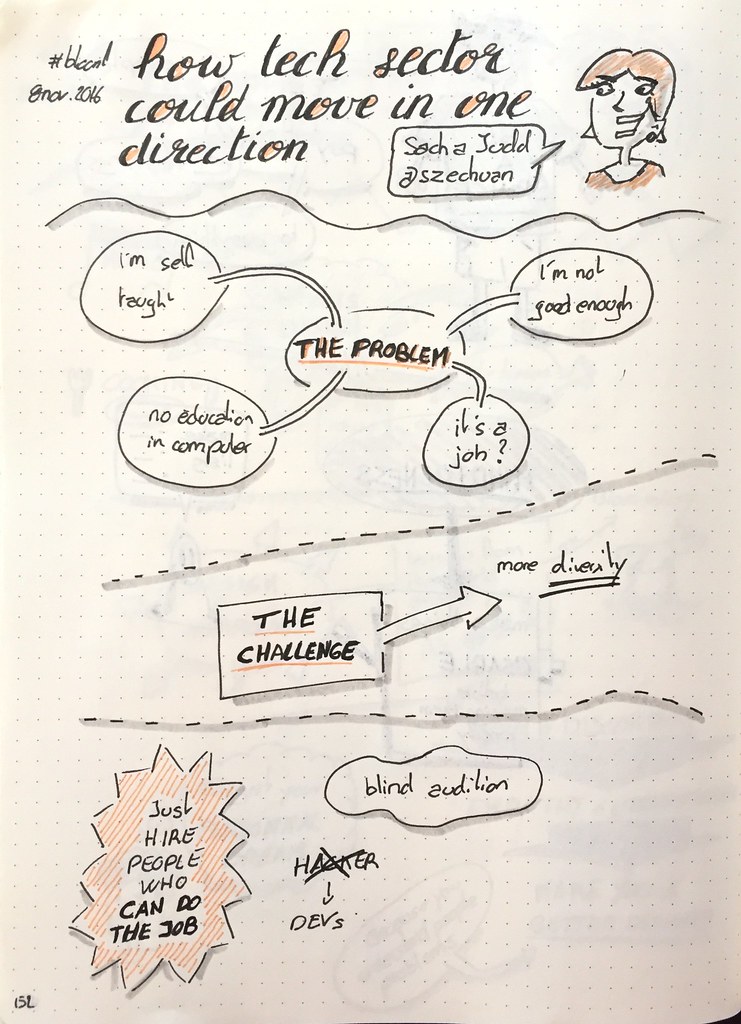 #blccnl
8 nov. 2016
how tech sector
could move in one
direction
Sacha Judd
@szechuan
i'm self
taught
I'm not
good enough
THE PROBLEM
no education
in computer
it's a
job?
more diversity
THE
CHALLENGE
blind audition
Just
HIRE
PEOPLE
WHO
CAN DO
THE JOB
HACKER
DEVs
152